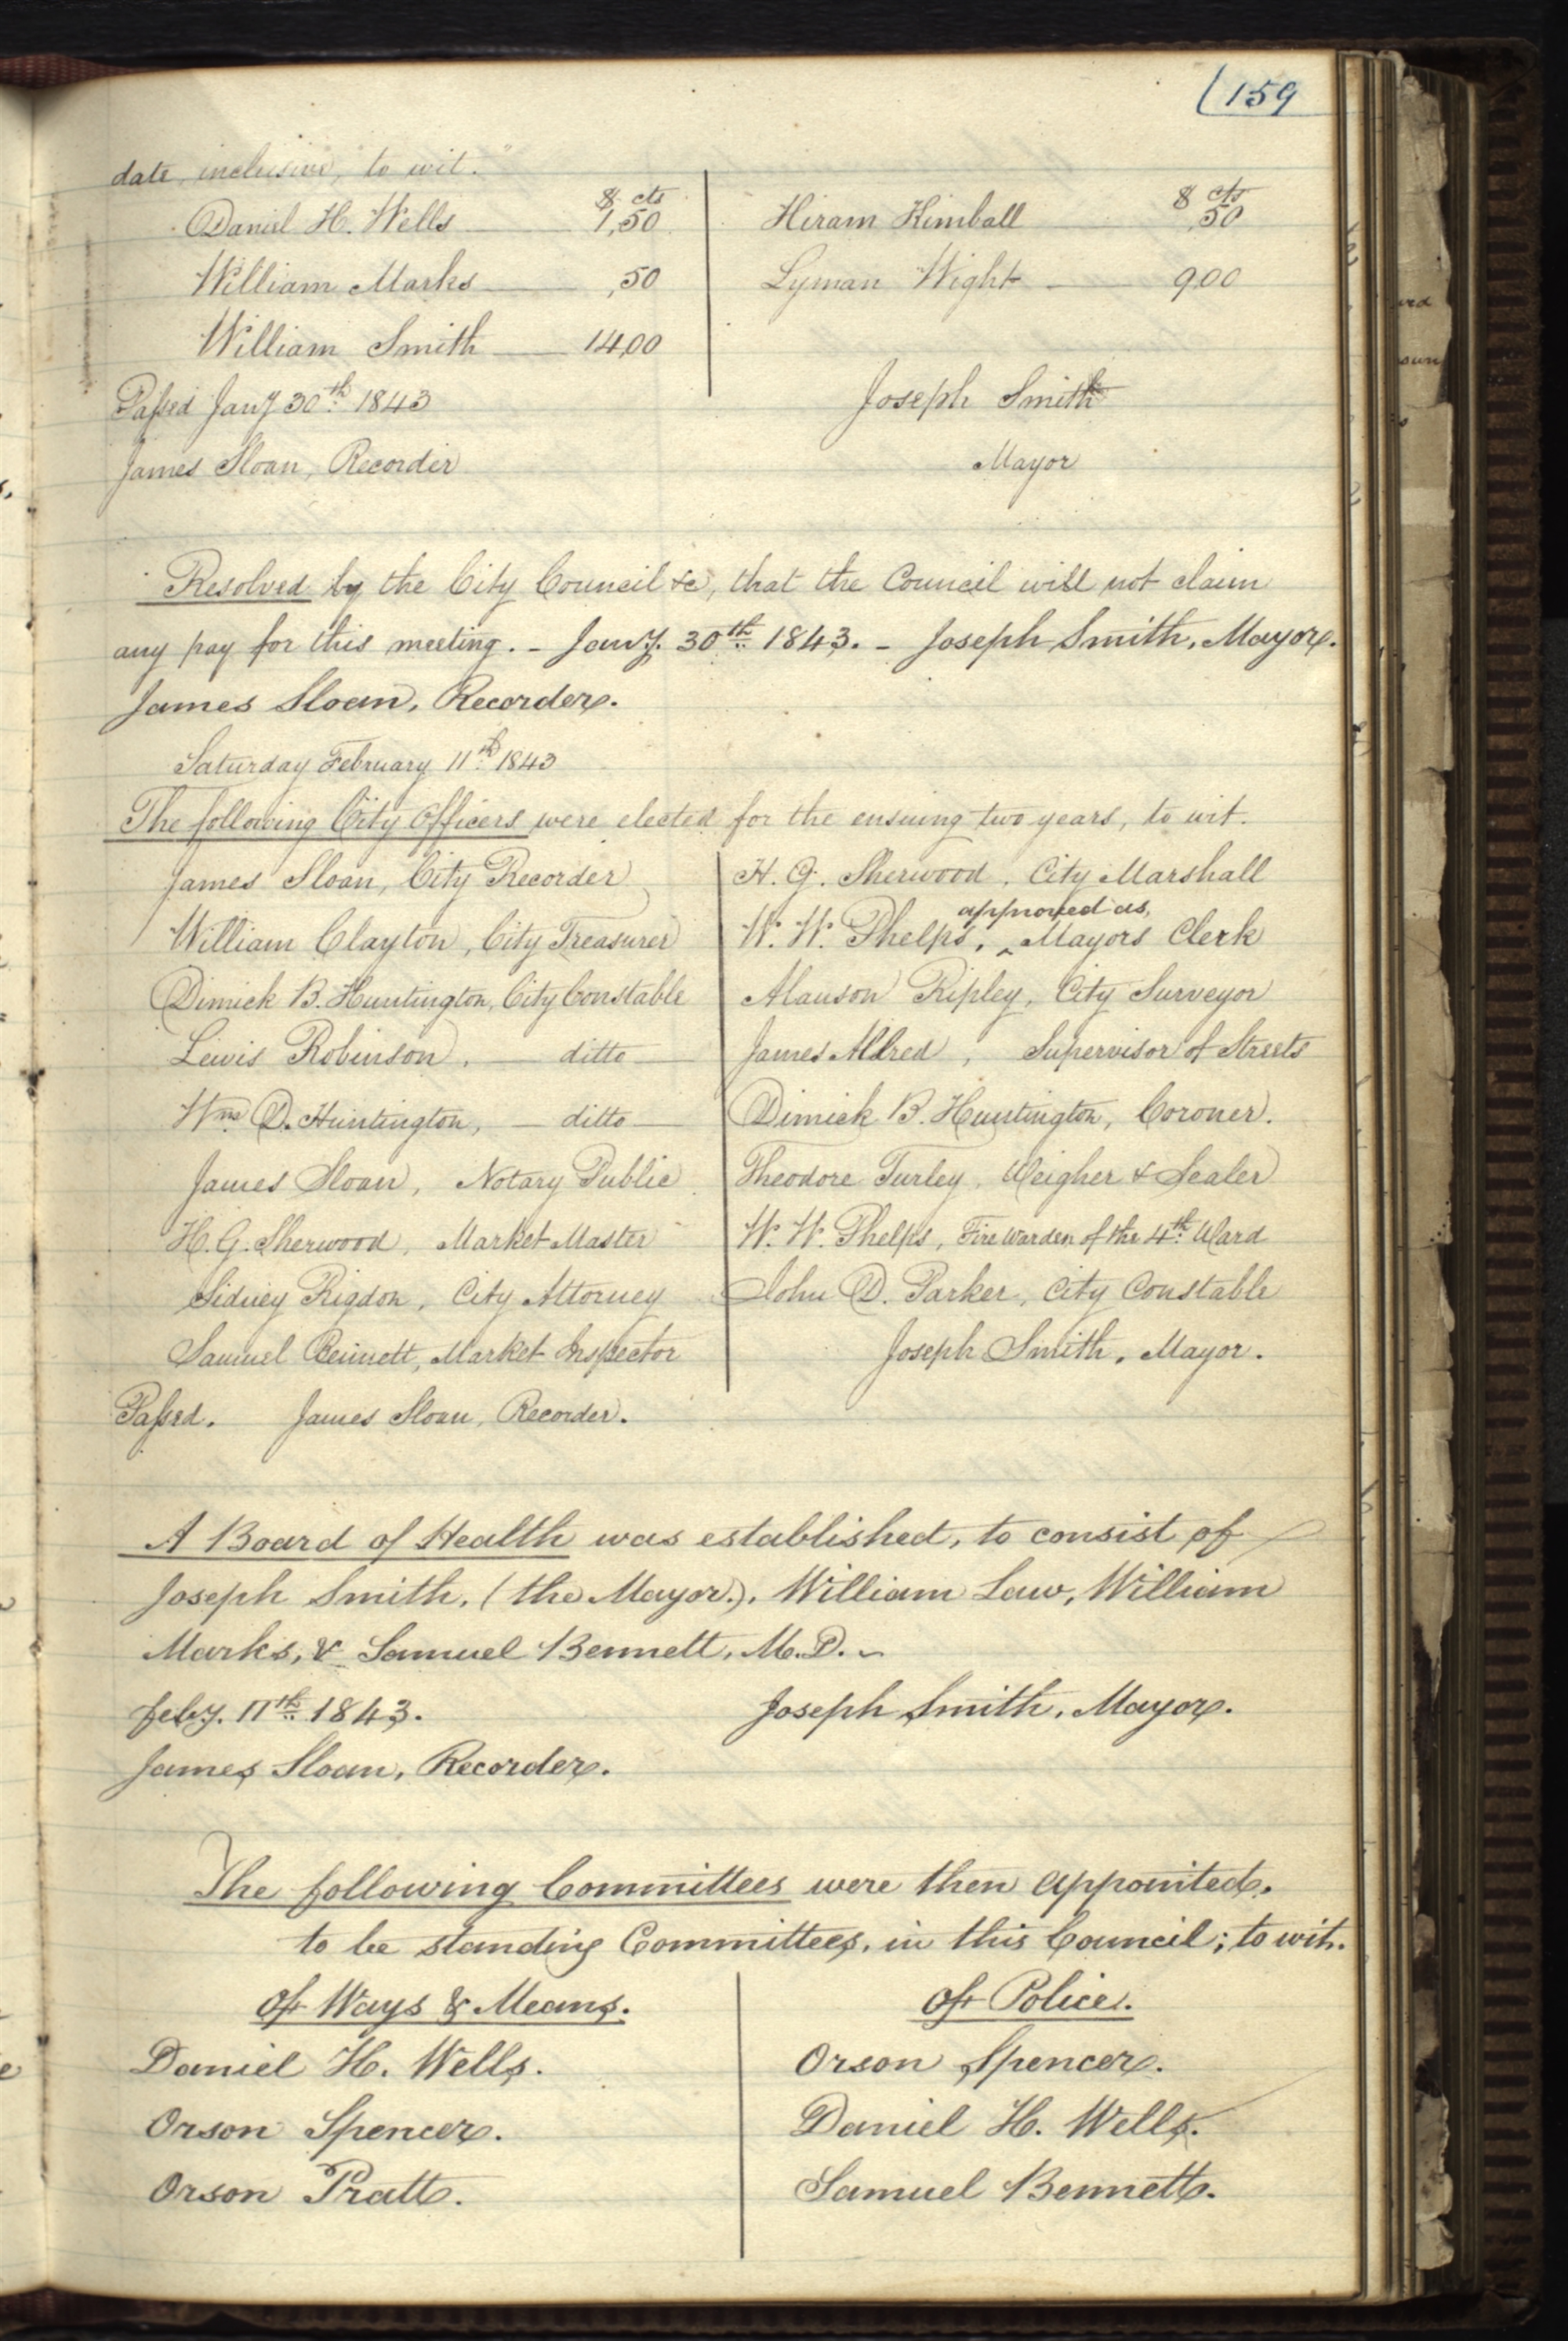 (159
date, inclusive, to wit."
$ cts
Daniel H. Wells 1,50
William Marks ,50
William Smith 14,00
$ cts
Hiram Kimball ,50
Lyman Wight 9,00
Passed Jany 30th 1843
James Sloan, Recorder
Joseph Smith
Mayor
Resolved by the City Council &c, that the Council will not claim
any pay for this meeting. - Jany. 30th 1843. - Joseph Smith, Mayor.
James Sloan, Recorder.
Saturday February 11th 1843
The following City Officers were elected for the ensuing two years, to wit.
James Sloan, City Recorder
William Clayton, City Treasurer
Dimick B. Huntington, City Constable
Lewis Robinson, — ditto —
Wm. D. Huntington, — ditto —
James Sloan, Notary Public
H. G. Sherwood, Market Master
Sidney Rigdon, City Attorney
Samuel Bennett, Market Inspector
H. G. Sherwood, City Marshall
approved as,
W. W. Phelps, ^ Mayors Clerk
Alanson Ripley, City Surveyor
James Allred, Supervisor of Streets
Dimick B. Huntington, Coroner.
Theodore Turley, Weigher & Sealer
W. W. Phelps, Fire Warden of the 4th Ward
John D. Parker, City Constable
Joseph Smith, Mayor.
Passed. James Sloan, Recorder.
A Board of Health was established, to consist of
Joseph Smith, (the Mayor.), William Law, William
Marks, & Samuel Bennett, M.D. ~
Feby. 11th 1843. Joseph Smith, Mayor.
James Sloan, Recorder.
The following Committees were then appointed,
to be standing Committees, in this Council; to wit.
Of Ways & Means.
Daniel H. Wells.
Orson Spencer.
Orson Pratt.
Of Police.
Orson Spencer.
Daniel H. Wells.
Samuel Bennett.